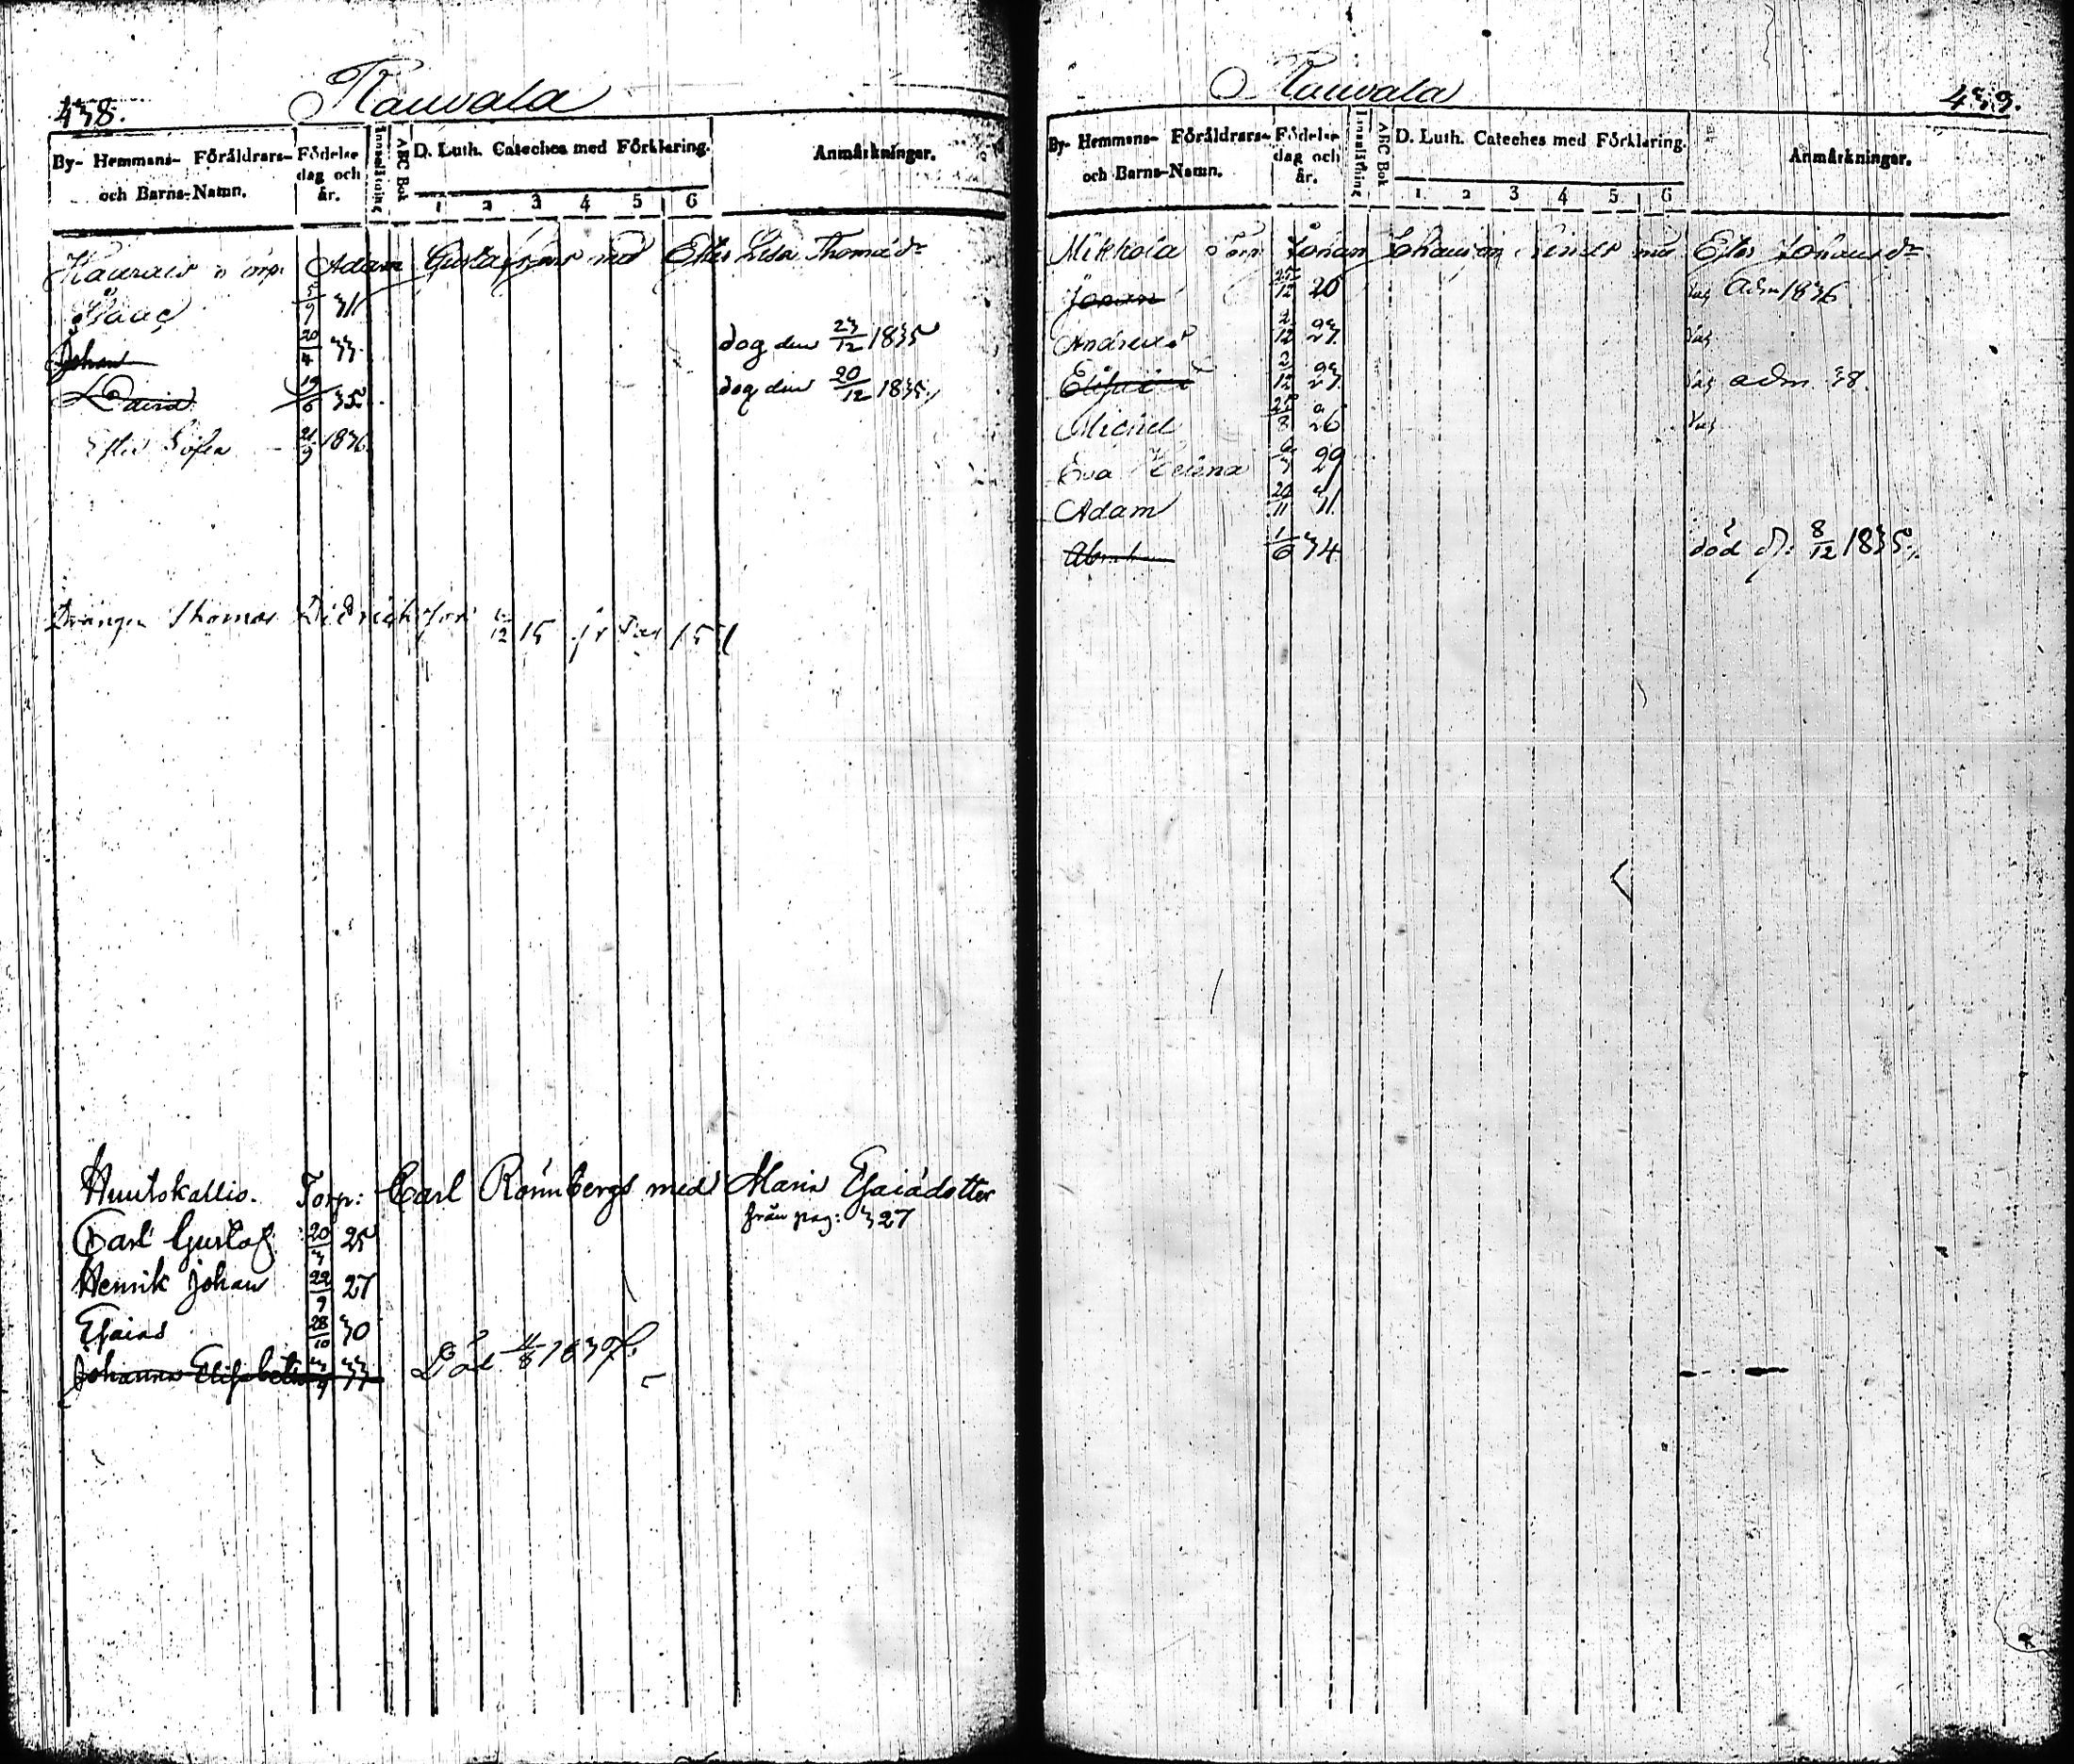 438.
Rauvala
By- Hemmans- Föräldrars- och Barns-Namn. Födelse dag och år. Innanläsning ABC Bok D. Luth. Cateches med Förklaring. Anmärkningar.
1 2 3 4 5 6
Adam Gustafsons med Esters Lisa Thomæd:r
Isaac 9 31
Johan 20/4 33 dog den 23/12 1835
David 19/6 35 dog den 20/12 1835
Ester Sofia 21/9 1836
Drängen Thomas Didrichsson /12 15
Huutokallio. Torp: Carl Rönnbergs med Maria Esaiædotter
från pag: 327
Carl Gustaf 20/3 25
Henrik Johan 22/9 27
Esaias 28/10 30
Johanna Elisabeth 33 Död
Rauvala
439.
By- Hemmans- Föräldrars- och Barns-Namn. Födelse dag och år. Innanläsning ABC Bok D. Luth. Cateches med Förklaring. Anmärkningar.
1 2 3 4 5 6
Mikkola Torp Johan Johansson med Ester Johansd:r
Johan 25/12 20 adm 1836
Andreas 2/12 23
2/12 23 adm 38.
Michel 26
Eva Helena 29
Adam 20/11 31
Abraham 1/6 34 död d: 8/12 1835